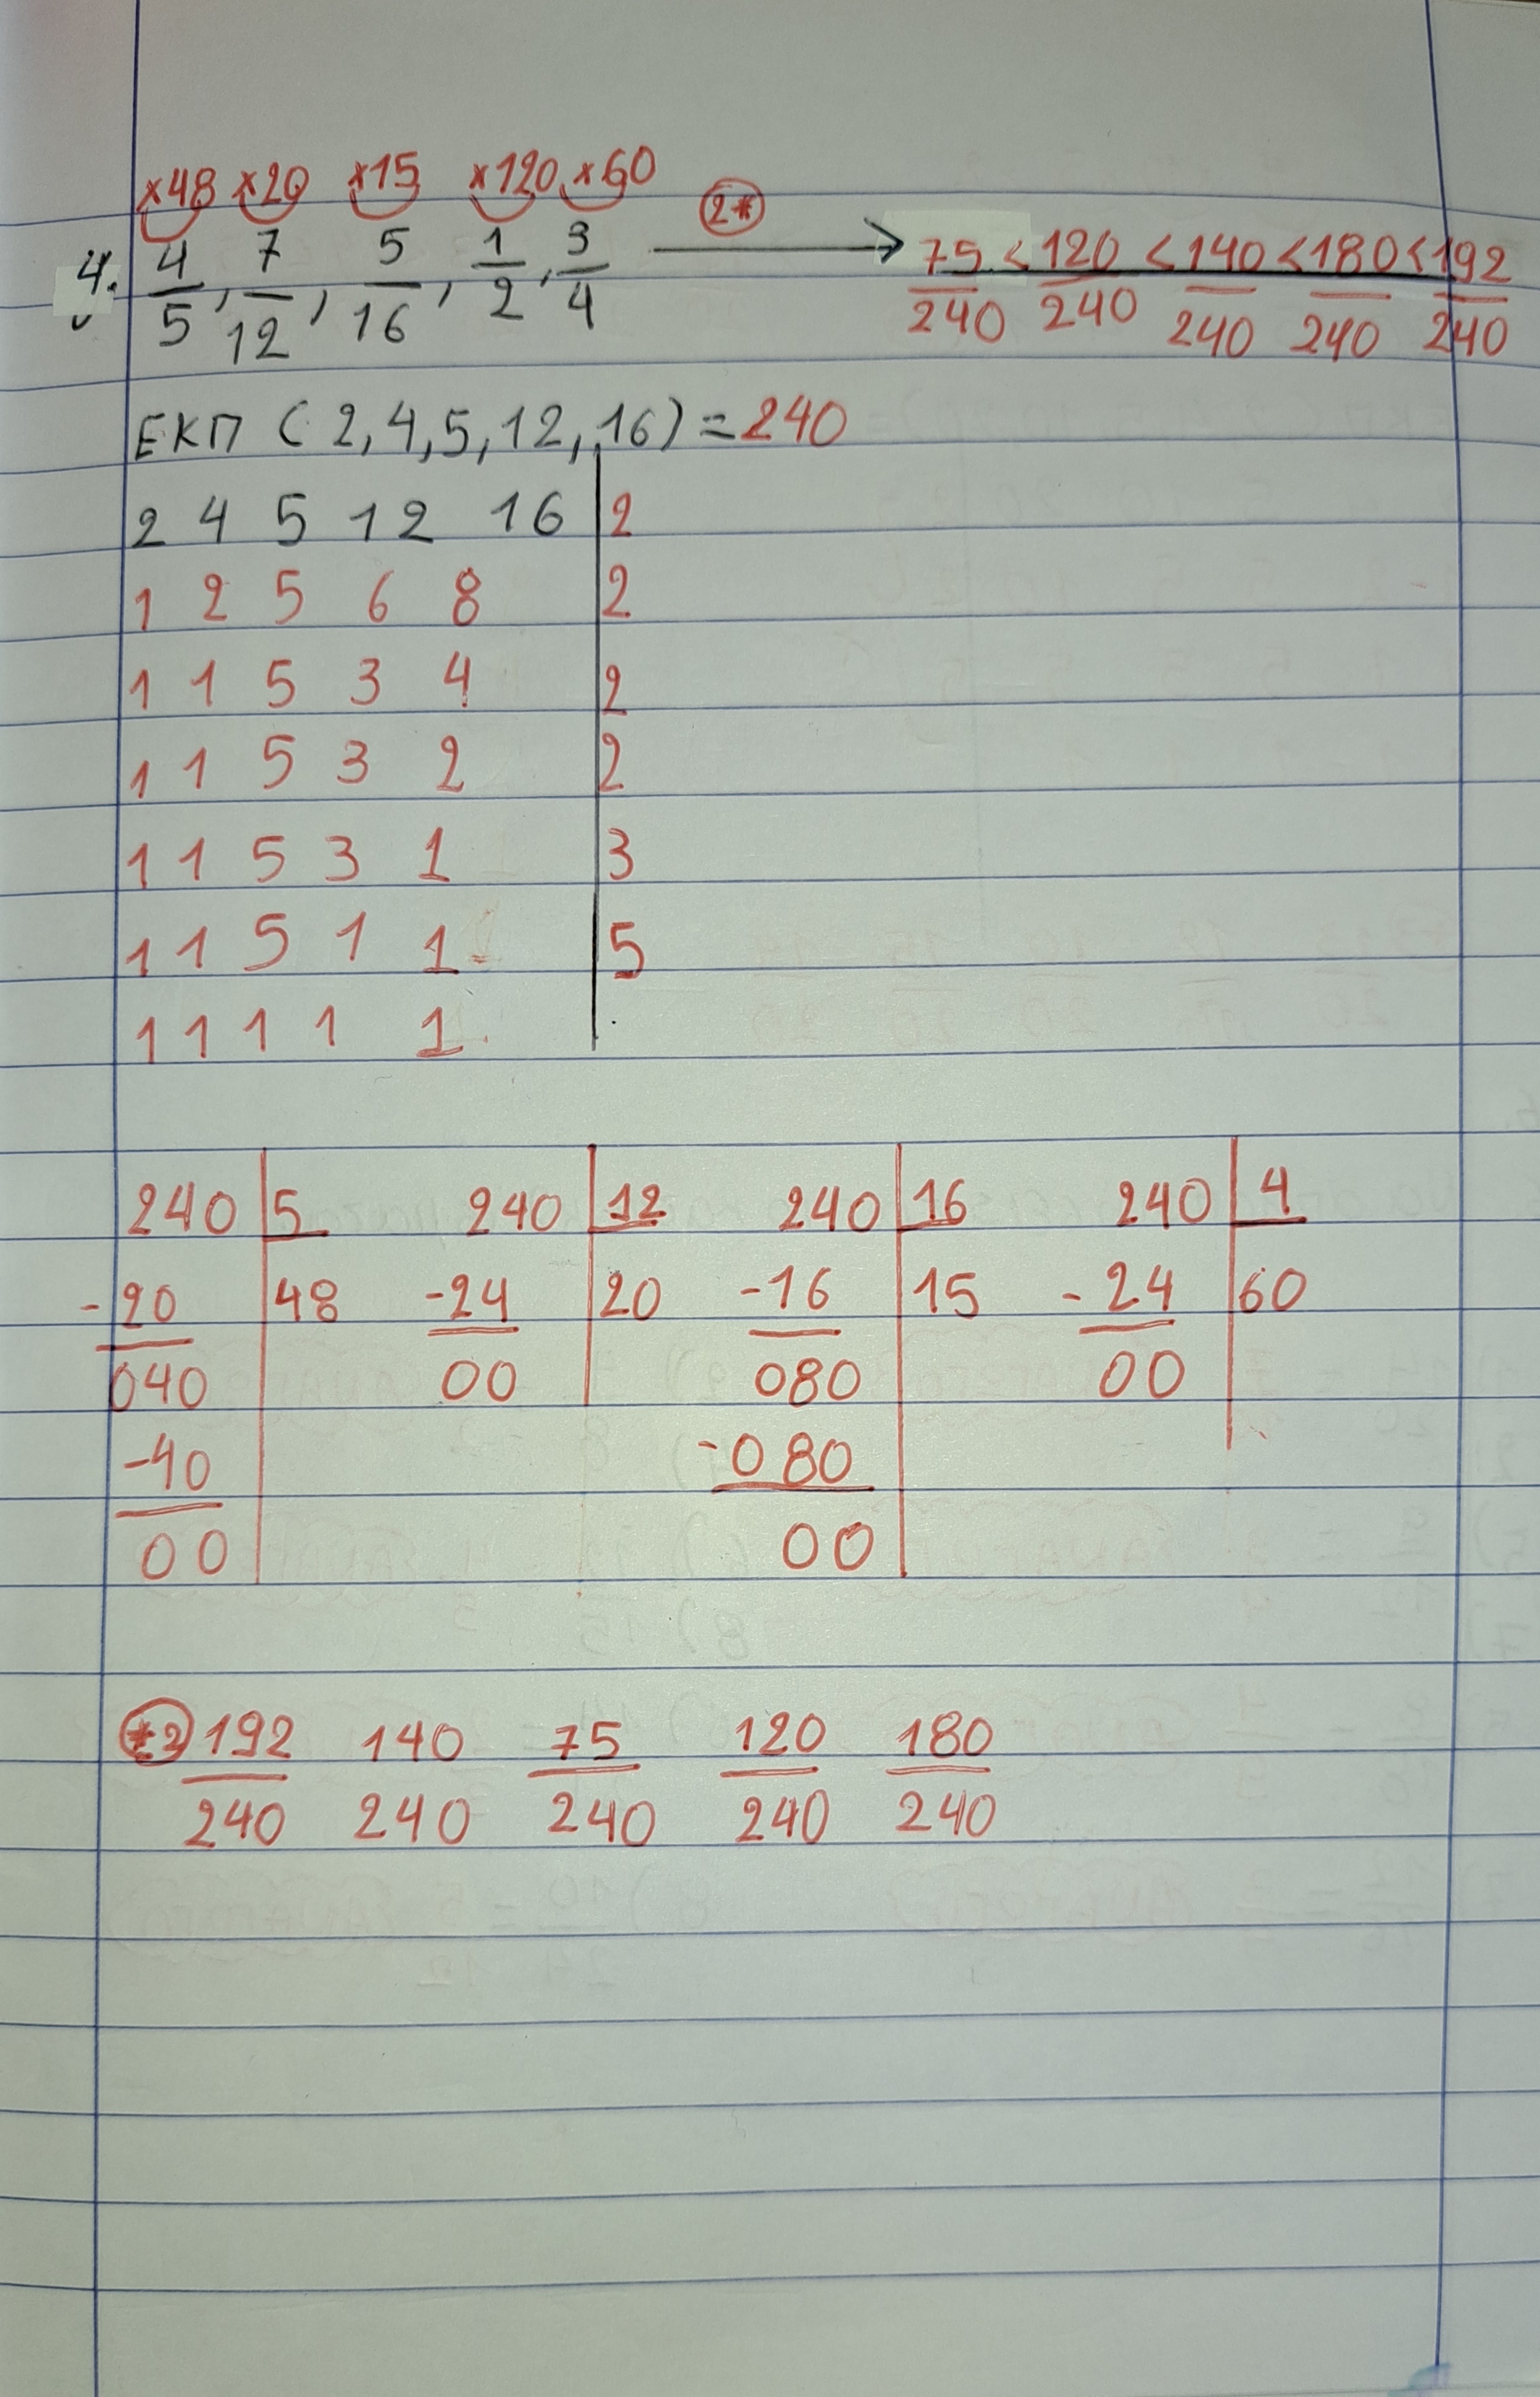 ×48 ×20 ×15 ×120 ×60
4. 4/5, 7/12, 5/16, 1/2, 3/4 (2*) → 75/240 < 120/240 < 140/240 < 180/240 < 192/240
ΕΚΠ (2,4,5,12,16) = 240
2 4 5 12 16 | 2
1 2 5 6 8 | 2
1 1 5 3 4 | 2
1 1 5 3 2 | 2
1 1 5 3 1 | 3
1 1 5 1 1 | 5
1 1 1 1 1 |
240 | 5 240 | 12 240 | 16 240 | 4
-20 | 48 -24 | 20 -16 | 15 -24 | 60
040 00 080 00
-40 -080
00 00
(*2) 192/240 140/240 75/240 120/240 180/240